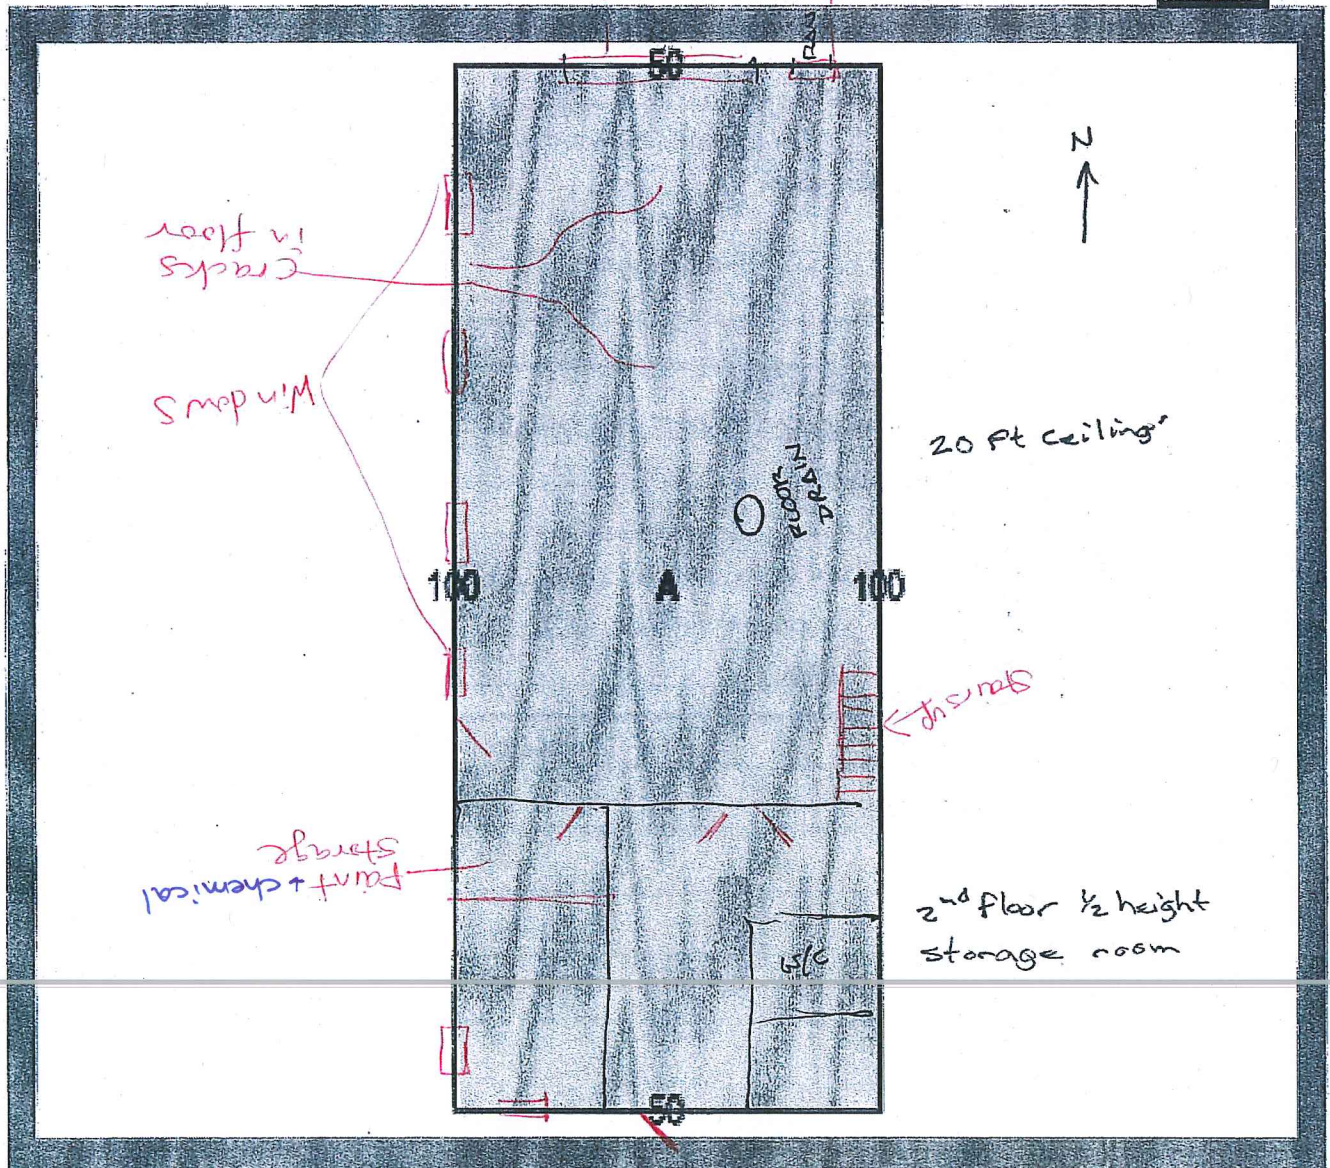 50
N
cracks
in floor
Windows
20 ft ceiling
FLOOR
DRAIN
100
A
100
stairs up
paint + chemical
storage
2nd floor ½ height
storage room
W/C
50